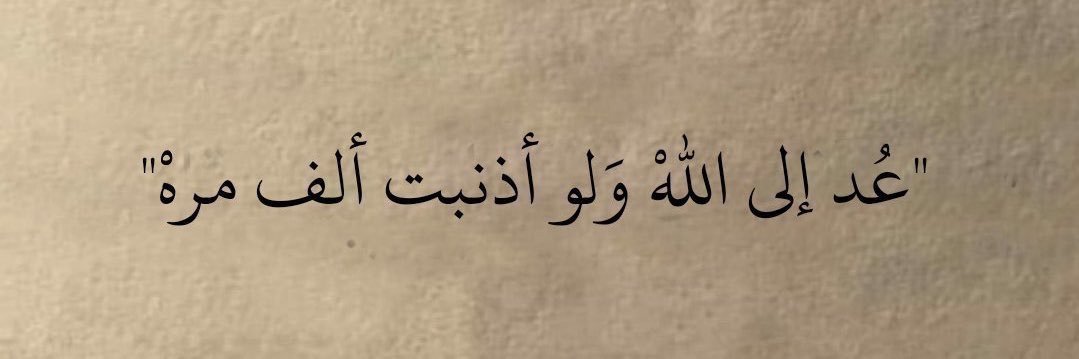 "عُد إلى اللّٰهْ وَلو أذنبت ألف مرهْ"